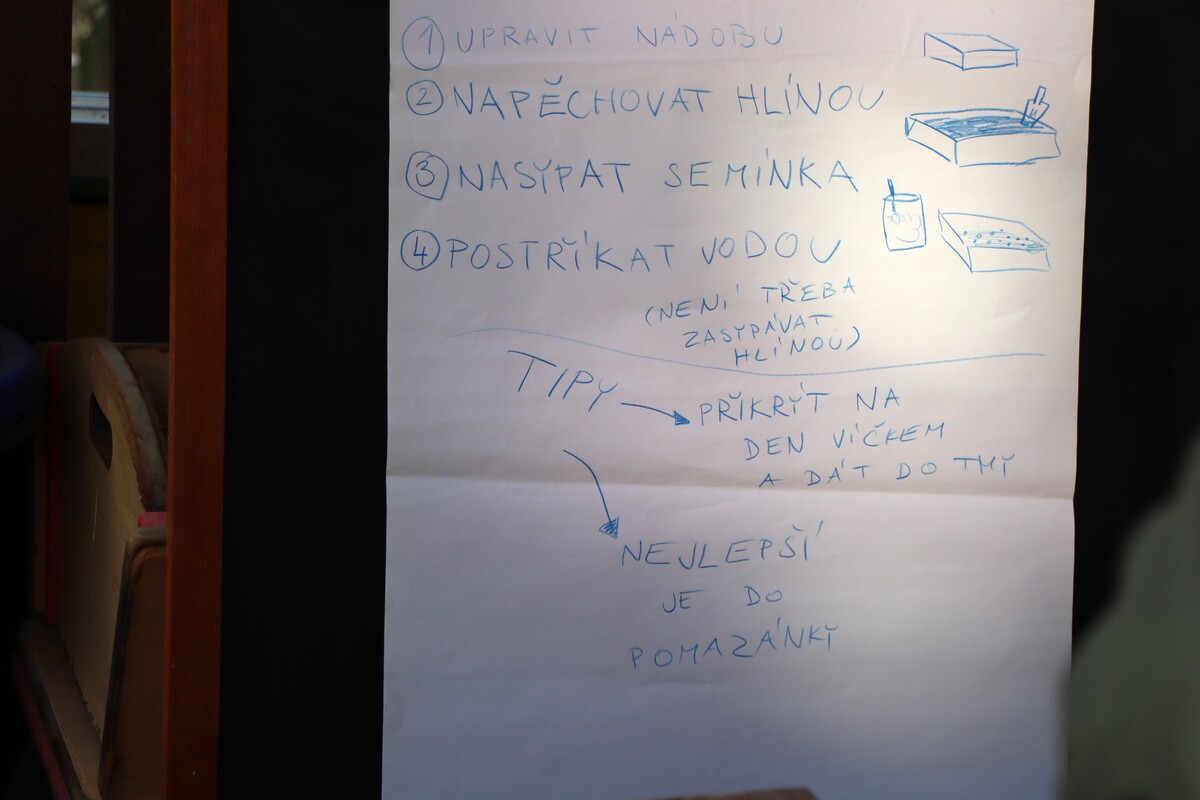 1 UPRAVIT NÁDOBU
2 NAPĚCHOVAT HLÍNOU
3 NASYPAT SEMÍNKA
4 POSTŘÍKAT VODOU
(NENÍ TŘEBA
ZASYPÁVAT
HLÍNOU)
TIPY
PŘIKRÝT NA
DEN VÍČKEM
A DÁT DO TMY
NEJLEPŠÍ
JE DO
POMAZÁNKY